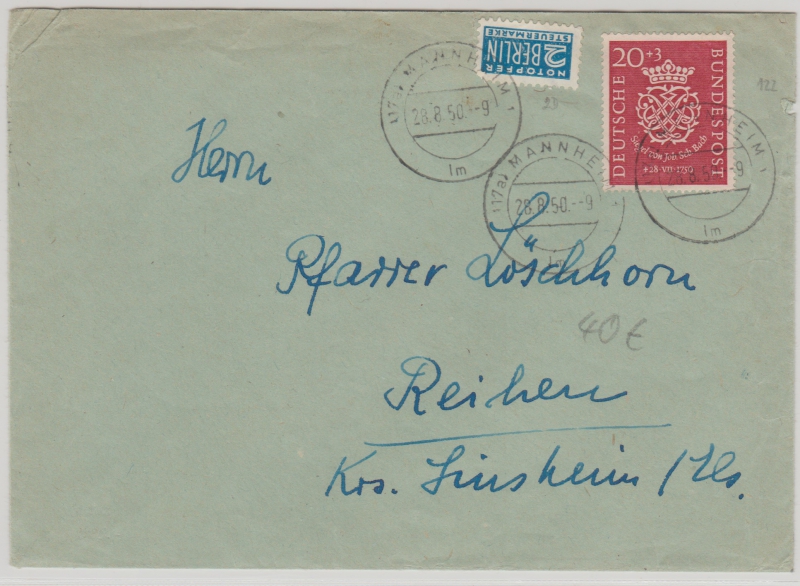 NOTOPFER
2 BERLIN
STEUERMARKE
20+3
DEUTSCHE
BUNDESPOST
Siegel von Joh. Seb. Bach
+28·VII·1750
(17a) MANNHEIM 1
28.8.50.--9
1m
(17a) MANNHEIM
28.8.50.--9
1m
HEIM 1
-9
1m
122
Herrn
Pfarrer Löschhorn
40 €
Reihen
Krs. Sinsheim / Els.